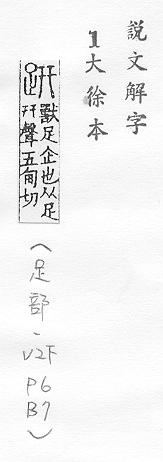 說文解字
1大徐本
趼 獸足企也从足
幵聲五甸切
(足部-V2下P6B7)